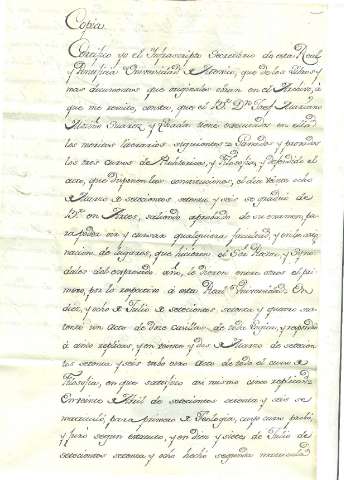 Copia
Certifico yo el Infrascripto Secretario de esta Real,
y Pontificia Universidad de Mexico, que de los Libros y
mas documentos que originales obran en el Archivo, a
que me remito, consta, que el Br. Dn. Josef Mariano
Suarez, y tiene executados en esta
los meritos literarios siguientes = Ganados y provados
los tres cursos de Rethorica, y Filosofia, y defendido el
acto, que disponen las constituciones, el dia ocho
de de setecientos setenta, y seis se graduó de
Br. en Artes, saliendo aprobado de su examen, pa
ra poder oir y cursar qualquiera facultad, y en la asig
nacion de lugares, que hicieron el Sor. Rector, y Sino
dales del expresado año, le dieron entre otros el pri
mero, por lo respectivo a esta Real Universidad. En
diez, y ocho de Julio de setecientos, setenta, y quatro sus
tentó un Acto de doce de toda , y respondió
á seis replicas, y en veinte, y dos de de setecien
tos setenta y seis tubo otro Acto de todo el curso de
Filosofia, en que satisfizo asi mismo cinco replicas =
En veinte de Abril de setecientos setenta, y seis se
matriculó, para primero de Teologia, cuyo curso probó,
y juró segun estatuto, y en diez y siete de Julio de
setecientos setenta, y ocho hecho segunda matricula